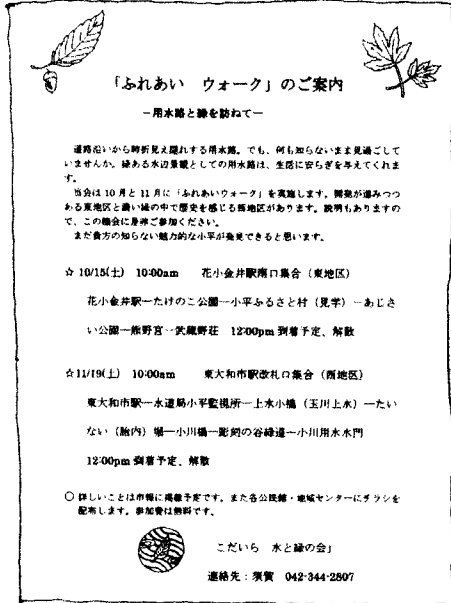 「ふれあい　ウォーク」のご案内
－用水路と緑を訪ねて－
道路沿いから時折見え隠れする用水路。でも、何も知らないまま見過ごして
いませんか。緑ある水辺景観としての用水路は、生活に安らぎを与えてくれま
す。
当会は10月と11月に「ふれあいウォーク」を実施します。開発が進みつつ
ある東地区と濃い緑の中で歴史を感じる西地区があります。説明もありますの
で、この機会に是非ご参加ください。
まだ貴方の知らない魅力的な小平が発見できると思います。
☆ 10/15(土)　10:00am　花小金井駅南口集合（東地区）
花小金井駅ーたけのこ公園ー小平ふるさと村（見学）ーあじさ
い公園ー熊野宮ー武蔵野荘　12:00pm 到着予定、解散
☆11/19(土)　10:00am　東大和市駅改札口集合（西地区）
東大和市駅ー水道局小平監視所ー上水小橋（玉川上水）ーたい
ない（胎内）堀ー小川橋ー彫刻の谷緑道ー小川用水水門
12:00pm 到着予定、解散
○ 詳しいことは市報に掲載予定です。また各公民館・地域センターにチラシを
配布します。参加費は無料です。
こだいら　水と緑の会」
連絡先：須賀　042-344-2807